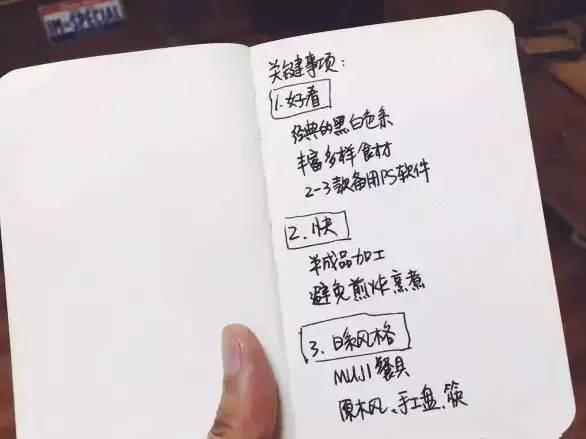 IM-SPECIAL
关键事项:
1.好看
经典的黑白色系
丰富多样食材
2-3款备用PS软件
2.快
半成品加工
避免煎炸烹煮
3.日系风格
MUJI餐具
原木风、手工盘、筷